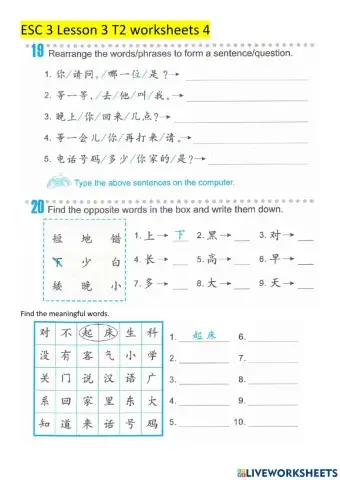 ESC 3 Lesson 3 T2 worksheets 4
19 Rearrange the words/phrases to form a sentence/question.
1. 你/请问,/哪一位/是?→
2. 等一等,/去/他/叫/我。→
3. 晚上/你/回来/几点?→
4. 等一会儿/你/再打来/请。→
5. 电话号码/多少/你家的/是?→
Type the above sentences on the computer.
20 Find the opposite words in the box and write them down.
短 地 错
下 少 白
矮 晚 小
1. 上→ 下 2. 黑→ 3. 对→
4. 长→ 5. 高→ 6. 早→
7. 多→ 8. 大→ 9. 天→
Find the meaningful words.
对 不 起 床 生 科
没 有 客 气 小 学
关 门 说 汉 语 广
系 回 家 里 东 大
知 道 来 话 号 码
1. 起床 6.
2. 7.
3. 8.
4. 9.
5. 10.
LIVEWORKSHEETS